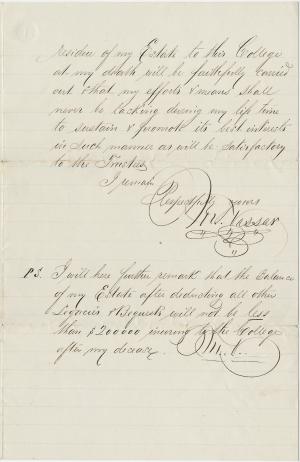 residue of my Estate to this College
at my death will be faithfully carried
out & that my efforts & means shall
never be lacking during my life time
to sustain & promote its best interests
in such manner as will be satisfactory
to the Trustees
I remain
Respectfully yours
M. Vassar
P.S. I will here further remark that the balance
of my Estate after deducting all other
Legacies & bequests will not be less
than $200000 inuring to the College
after my decease. M. V.